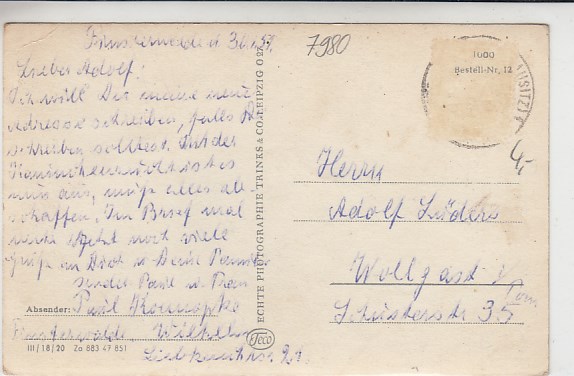 Finsterwalde d.
7980
Lieber Adolf!
Ich will Dir meine neue
Adresse schreiben, falls Du
schreiben solltest. Mit der
Kaninchenzucht ist es
nun aus, muß alles ab
schaffen. Im Brief mal
mehr. Jetzt noch viele
Grüße an Dich u. Deine Familie
sendet Paul u. Frau
Absender: Paul
Finsterwalde, Wilhelm
Liebknechtstr.
III/18/20 Za 883 47 851
ECHTE PHOTOGRAPHIE TRINKS & CO. LEIPZIG O 27
Teco
1000
Bestell-Nr. 12
4,-
Herrn
Adolf Lüders
Wollgast
Pom
Schusterstr 35